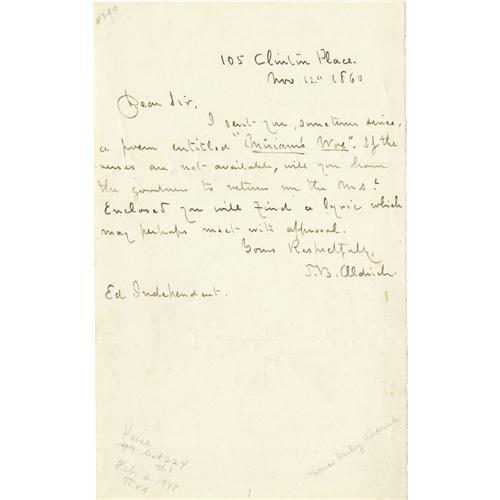 105 Clinton Place.
Nov 12" 1860
Dear Sir,
I sent you, sometime since,
a poem entitled "Miriam's Woe". If the
verses are not available, will you have
the goodness to return me the MS?
Enclosed you will find a lyric which
may perhaps meet with approval.
Yours Respectfully,
T. B. Aldrich.
Ed Independent.
#1
Feb. 6-1947
Thomas Bailey Aldrich
1